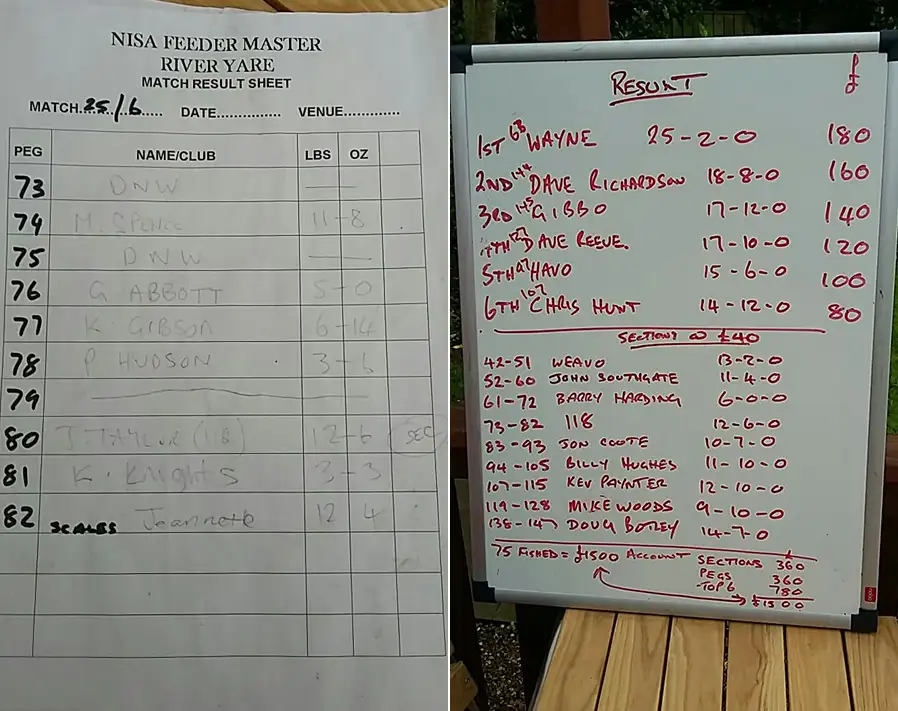 NISA FEEDER MASTER
RIVER YARE
MATCH RESULT SHEET
MATCH..25/6..... DATE............... VENUE.............
PEG NAME/CLUB LBS OZ
73 DNW —
74 M. SPENCE 11-8
75 DNW —
76 G ABBOTT 5-0
77 K. GIBSON 6-14
78 P HUDSON 3-6
79
80 J. TAYLOR (118) 12-6 SEC
81 K. Knights 3-3
82 SCALES Jeannette 12 4
RESULT £
1ST 63 WAYNE 25-2-0 180
2ND 144 DAVE RICHARDSON 18-8-0 160
3RD 145 GIBBO 17-12-0 140
4TH 127 DAVE REEVE. 17-10-0 120
5TH 97 HAVO 15-6-0 100
6TH 107 CHRIS HUNT 14-12-0 80
SECTIONS @ £40
42-51 WEAVO 13-2-0
52-60 JOHN SOUTHGATE 11-4-0
61-72 BARRY HARDING 6-0-0
73-82 118 12-6-0
83-93 JON COOTE 10-7-0
94-105 BILLY HUGHES 11-10-0
107-115 KEV PAYNTER 12-10-0
119-128 MIKE WOODS 9-10-0
138-147 DOUG BOTLEY 14-7-0
75 FISHED = £1500 ACCOUNT SECTIONS 360
PEGS 360
TOP 6 780
£1500